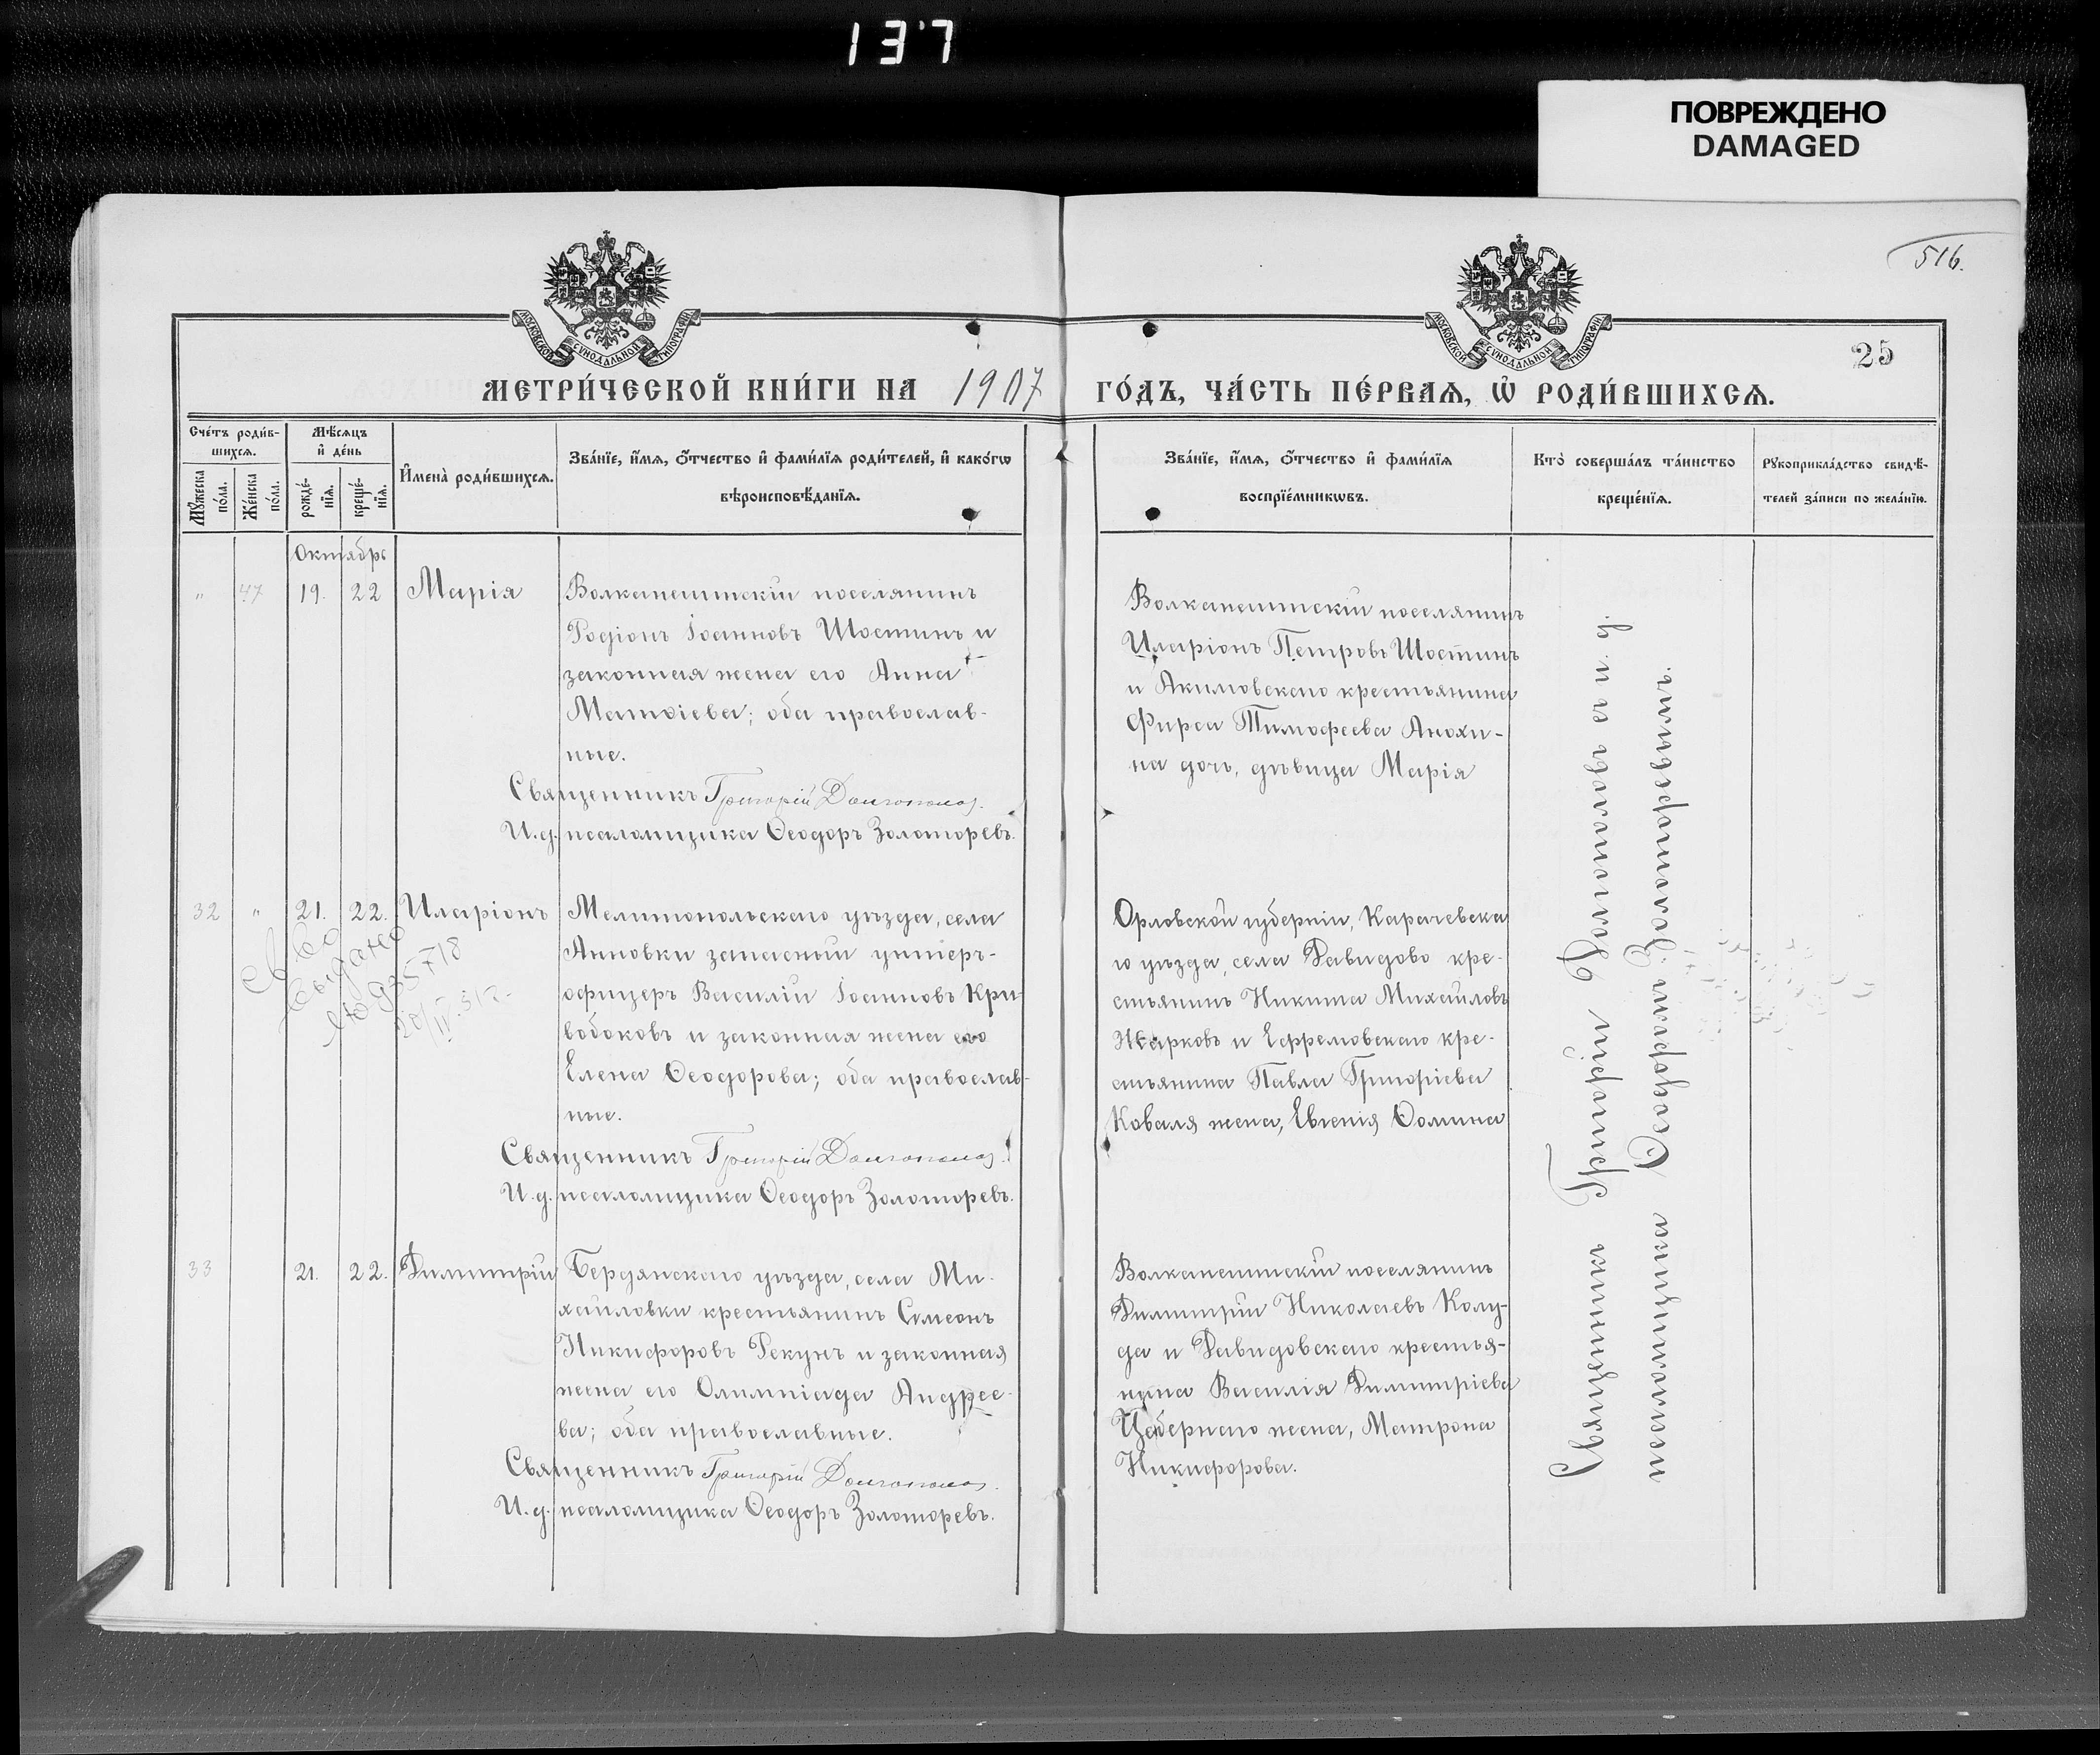 137
ПОВРЕЖДЕНО
DAMAGED
516.
25
МОСКОВСКОЙ СУНОДАЛЬНОЙ ТИПОГРАФІИ
МОСКОВСКОЙ СУНОДАЛЬНОЙ ТИПОГРАФІИ
МЕТРИ́ЧЕСКОЙ КНИ́ГИ НА 1907 ГО́ДЪ, ЧА́СТЬ ПЕ́РВАЯ, Ѡ҆ РОДИ́ВШИХСѦ.
Сче́тъ роди́в-
шихсѧ.
Мꙋ́жеска по́ла.
Же́нска по́ла.
Мѣ́сѧцъ
и҆ де́нь
рожде́-
нїѧ.
креще́-
нїѧ.
И҆мена̀ роди́вшихсѧ.
Зва́нїе, и҆́мѧ, ѻ҆́тчество и҆ фами́лїѧ роди́телей, и҆ како́гѡ
вѣроисповѣ́данїѧ.
Зва́нїе, и҆́мѧ, ѻ҆́тчество и҆ фами́лїѧ
воспрїе́мникѡвъ.
Кто̀ соверша́лъ та́инство
креще́нїѧ.
Рꙋкоприкла́дство свидѣ́-
телей за́писи по жела́нїю.
Октябрь
" 47 19. 22 Марія
Волканештскій поселянинъ
Родіонъ Іоанновъ Шостинъ и
законная жена его Анна
Матѳіева; оба православ-
ные.
Священникъ Григорій Долгополов.
И.д. псаломщика Ѳеодоръ Золоторевъ.
Волканештскій поселянинъ
Иларіонъ Петровъ Шостинъ
и Акимовскаго крестьянина
Фирса Тимофеева Анохи-
на дочь, дѣвица Марія
32 " 21. 22. Иларіонъ
св во
выдано
Мелитопольскаго уѣзда, села
Анновки запасный унтеръ-
офицеръ Василій Іоанновъ Кри-
вобоковъ и законная жена его
Елена Ѳеодорова; оба православ-
ные.
Священникъ Григорій Долгополов.
И.д. псаломщика Ѳеодоръ Золоторевъ.
Орловской губерніи, Карачевска
го уѣзда, села Давидово кре-
стьянинъ Никита Михайловъ
Жарковъ и Ефремовскаго кре-
стьянина Павла Григоріева
Коваля жена, Евгенія Ѳомина
33 21. 22. Димитрій
Бердянскаго уѣзда, села Ми-
хайловки крестьянинъ Симеонъ
Никифоровъ Рекунъ и законная
жена его Олимпіада Андрее-
ва; оба православные.
Священникъ Григорій Долгополов.
И.д. псаломщика Ѳеодоръ Золоторевъ.
Волканештскій поселянинъ
Димитрій Николаевъ Колу-
да и Давидовскаго крестья-
нина Василія Димитріева
Цабернаго жена, Матрона
Никифорова.
Священникъ Григорій Долгополовъ съ и. д.
псаломщика Ѳеодоромъ Золоторевымъ.